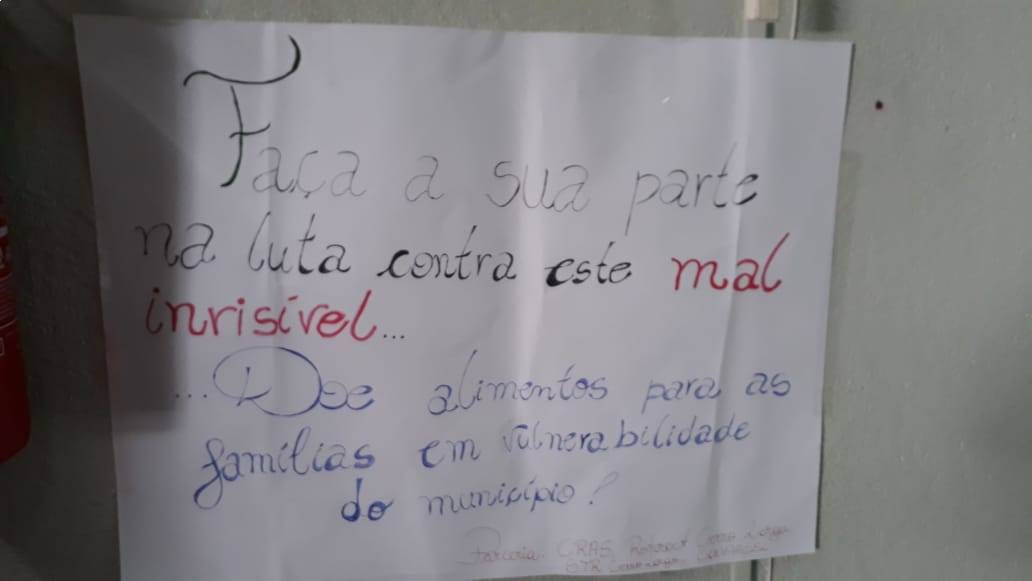 Faça a sua parte
na luta contra este mal
invisível...
...Doe alimentos para as
famílias em vulnerabilidade
do município!
Parceria: CRAS,